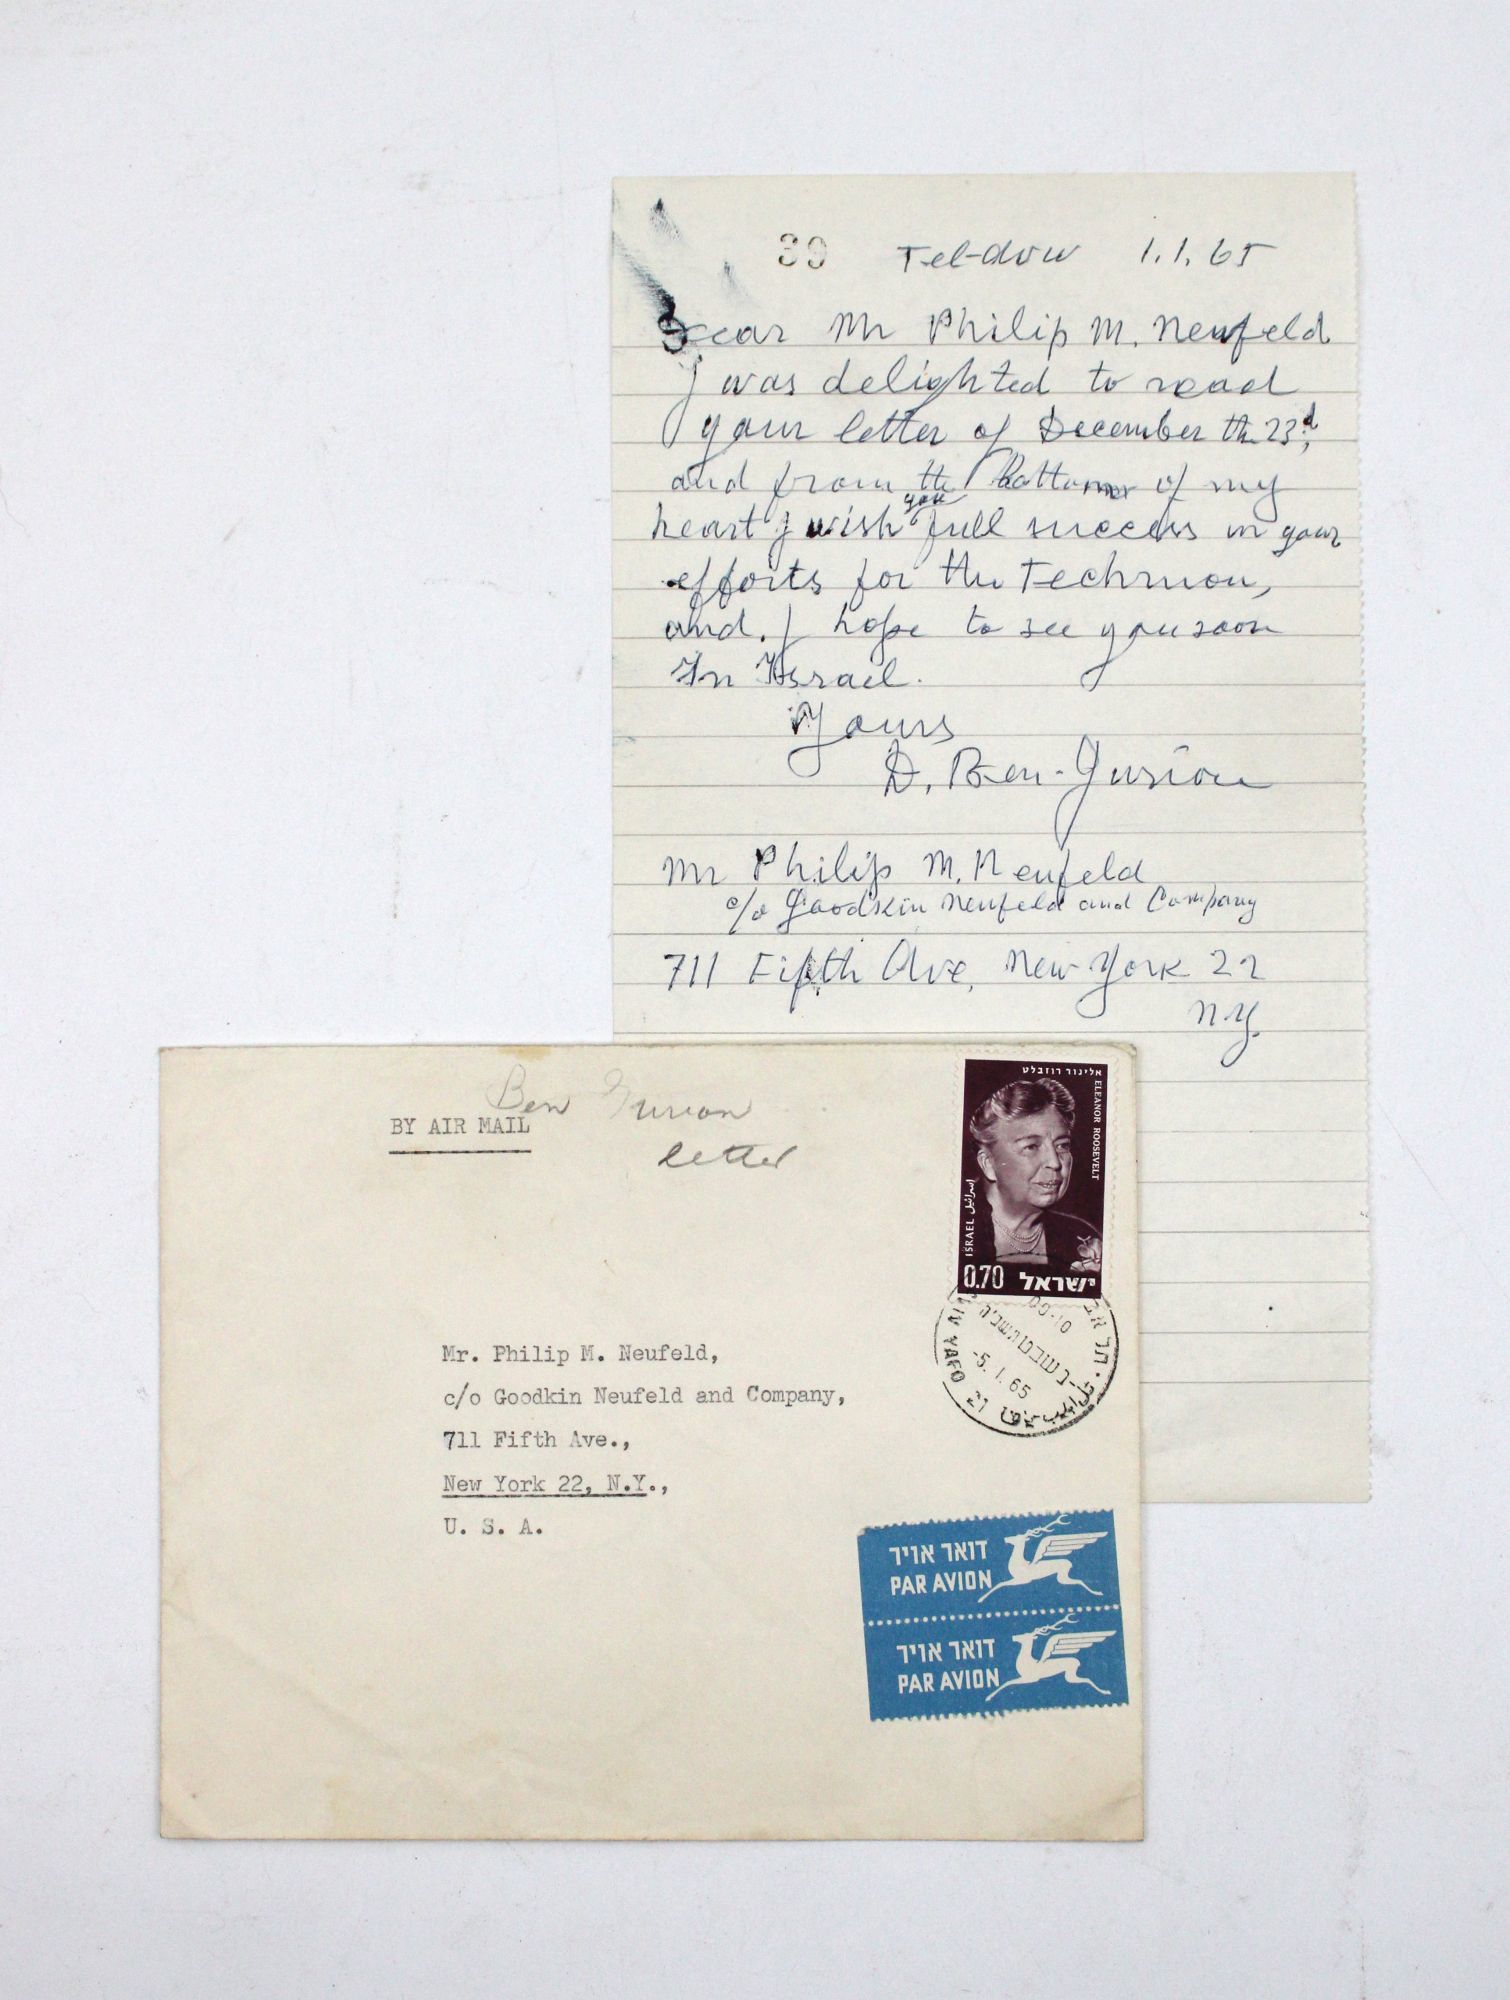 39 Tel-Aviv 1.1.65
Dear Mr Philip M. Neufeld
I was delighted to read
your letter of December the 23d,
and from the bottom of my
heart I wish you full success in your
efforts for the Technion,
and I hope to see you soon
In Israel.
Yours
D. Ben-Gurion
Mr Philip M. Neufeld
c/o Goodkin Neufeld and Company
711 Fifth Ave, New York 22
N.Y.
Ben Gurion
letter
BY AIR MAIL
אלינור רוזבלט
ELEANOR ROOSEVELT
ISRAEL اسرائيل
0.70 ישראל
00-10
-5.1.65
YAFO 21
Mr. Philip M. Neufeld,
c/o Goodkin Neufeld and Company,
711 Fifth Ave.,
New York 22, N.Y.,
U. S. A.
דואר אויר
PAR AVION
דואר אויר
PAR AVION